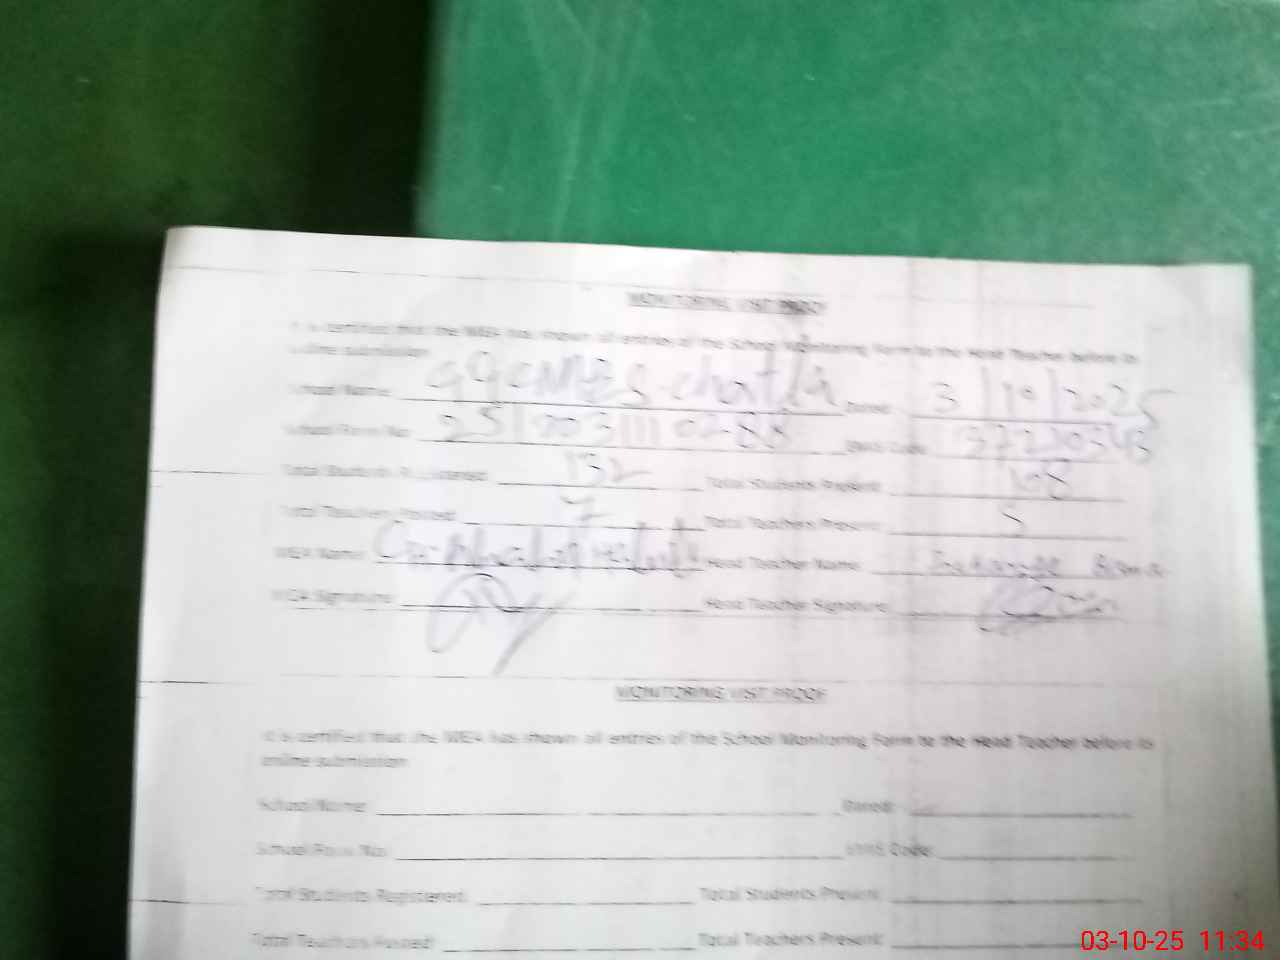 MONITORING VISIT PROOF
It is certified that the MEA has shown all entries of the School Monitoring Form to the Head Teacher before its
online submission
School Name: Dated: 3/10/2025
School Form No: EMIS Code:
Total Students Registered: 132 Total Students Present: 108
Total Teachers Posted: 7 Total Teachers Present: 5
MEA Name: Head Teacher Name:
MEA Signature: Head Teacher Signature:
MONITORING VISIT PROOF
It is certified that the MEA has shown all entries of the School Monitoring Form to the Head Teacher before its
online submission
School Name: Dated:
School Form No: EMIS Code:
Total Students Registered: Total Students Present:
Total Teachers Posted: Total Teachers Present:
03-10-25 11:34